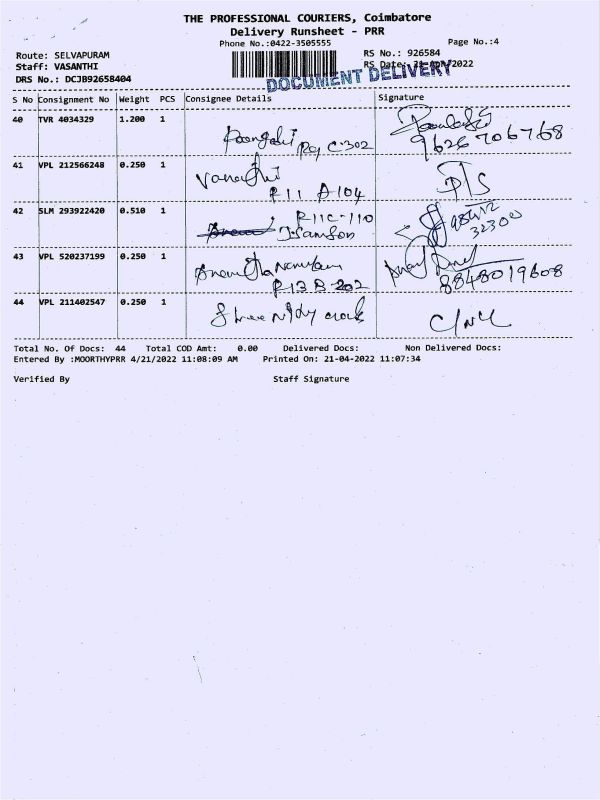 THE PROFESSIONAL COURIERS, Coimbatore
Delivery Runsheet - PRR
Phone No.:0422-3505555 Page No.:4
Route: SELVAPURAM RS No.: 926584
Staff: VASANTHI RS Date: 21-APR/2022
DRS No.: DCJB92658404
DOCUMENT DELIVERY
S No Consignment No Weight PCS Consignee Details Signature
40 TVR 4034329 1.200 1
C-302 9626706768
41 VPL 212566248 0.250 1
R11 A 104 P/S
42 SLM 293922420 0.510 1 R11C-110
J. Samson 32300
43 VPL 520237199 0.250 1
R13 B-202 8848019608
44 VPL 211402547 0.250 1
Total No. Of Docs: 44 Total COD Amt: 0.00 Delivered Docs: Non Delivered Docs:
Entered By :MOORTHYPRR 4/21/2022 11:08:09 AM Printed On: 21-04-2022 11:07:34
Verified By Staff Signature